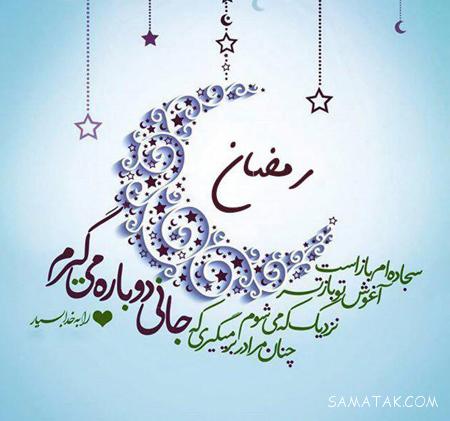 رمضان
سجاده ام باز است
آغوش تو باز تر
نزدیک که می شوم
چنان مرا در بر میگیری که
جانی دوباره می گیرم
را به خدا بسپارید
SAMATAK.COM